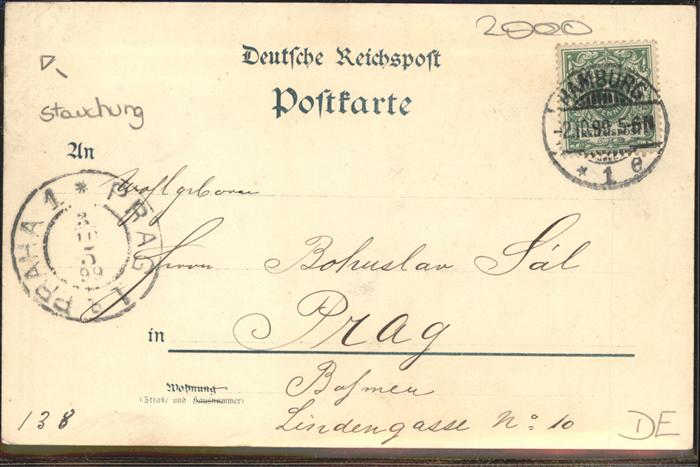 2000
Deutsche Reichspost
Postkarte
HAMBURG
2.10.99. 5-6N
* 1 e
Stauchung
An
Wohlgeboren
PRAHA 1 * PRAG 1
Herrn Bohuslav Sál
in Prag
Wohnung
(Straße und Hausnummer)
Böhmen
Lindengasse No: 10
138
DE